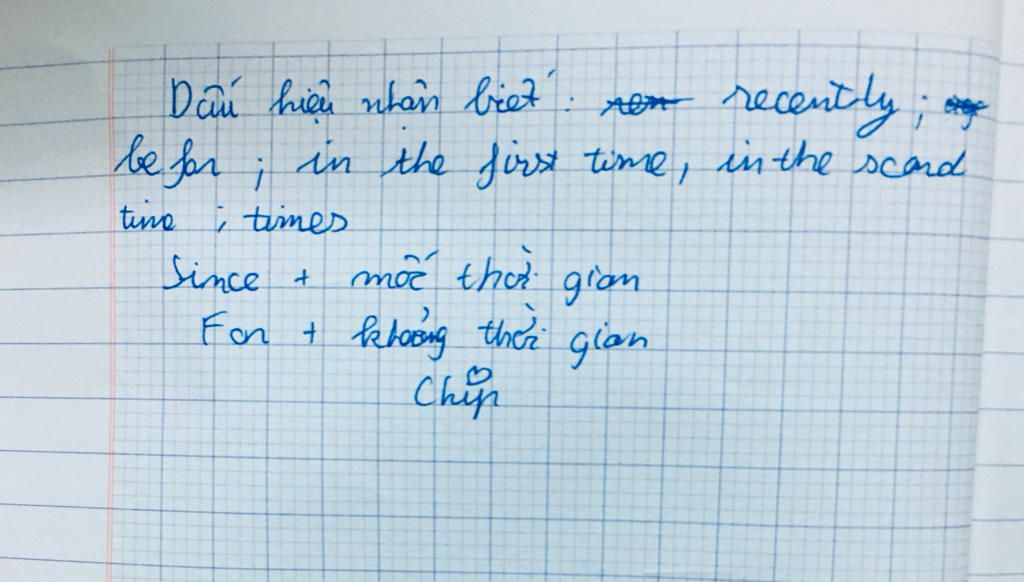 Dấu hiệu nhận biết : recently ;
be for ; in the first time, in the scand
time ; times
Since + mốc thời gian
For + khoảng thời gian
Chip